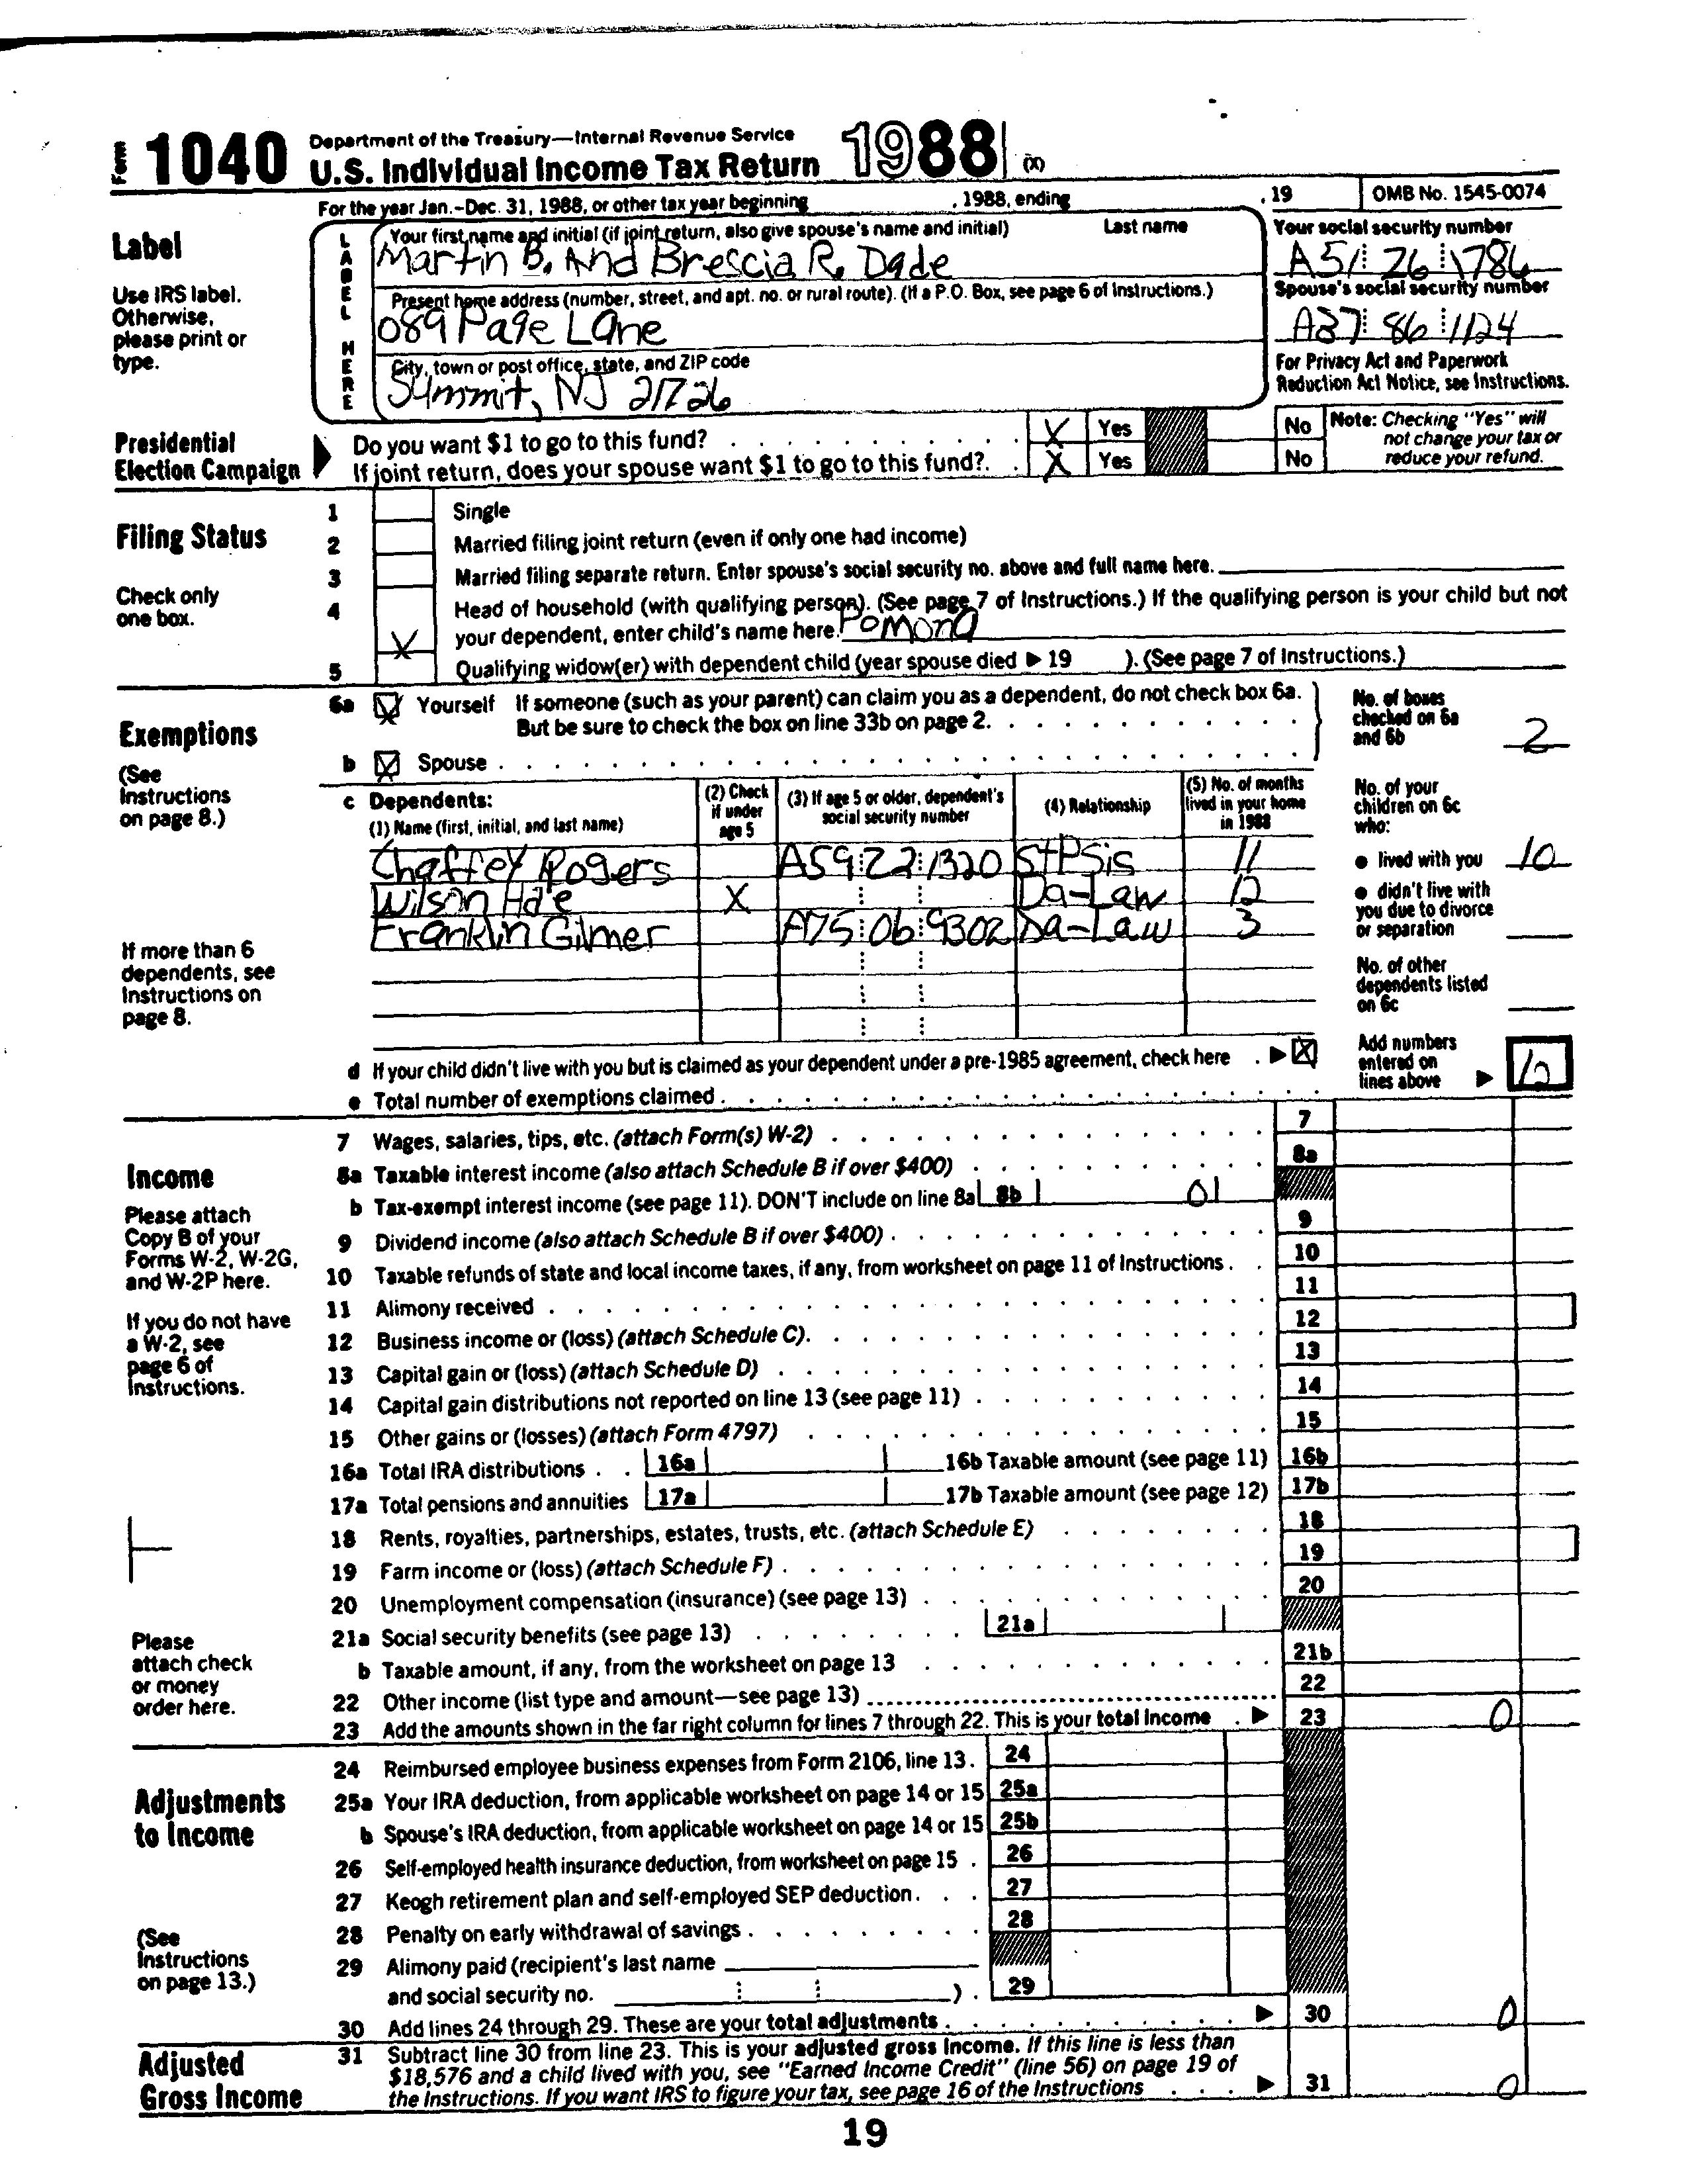 Form 1040 Department of the Treasury—Internal Revenue Service
U.S. Individual Income Tax Return 1988 (X)
For the year Jan.-Dec. 31, 1988, or other tax year beginning , 1988, ending , 19 OMB No. 1545-0074
Label
Use IRS label.
Otherwise,
please print or
type.
LABEL HERE
Your first name and initial (if joint return, also give spouse's name and initial) Last name
Martin B. And Brescia R. Dade
Your social security number
A51 26 1786
Present home address (number, street, and apt. no. or rural route). (If a P.O. Box, see page 6 of Instructions.)
089 Page Lane
Spouse's social security number
A37 86 1124
City, town or post office, state, and ZIP code
Summit, NJ 21726
For Privacy Act and Paperwork
Reduction Act Notice, see Instructions.
Presidential
Election Campaign
Do you want $1 to go to this fund? X Yes No
If joint return, does your spouse want $1 to go to this fund?. X Yes No
Note: Checking "Yes" will
not change your tax or
reduce your refund.
Filing Status
Check only
one box.
1 Single
2 Married filing joint return (even if only one had income)
3 Married filing separate return. Enter spouse's social security no. above and full name here.
4 Head of household (with qualifying person). (See page 7 of Instructions.) If the qualifying person is your child but not
X your dependent, enter child's name here. Pomona
5 Qualifying widow(er) with dependent child (year spouse died ▶ 19 ). (See page 7 of Instructions.)
Exemptions
(See
Instructions
on page 8.)
If more than 6
dependents, see
Instructions on
page 8.
6a X Yourself If someone (such as your parent) can claim you as a dependent, do not check box 6a.
But be sure to check the box on line 33b on page 2.
b X Spouse
No. of boxes
checked on 6a
and 6b 2
c Dependents:
(1) Name (first, initial, and last name) (2) Check if under age 5 (3) If age 5 or older, dependent's social security number (4) Relationship (5) No. of months lived in your home in 1988
Chaffey Rogers A59 22 1320 StPSis 11
Wilson Hale X Da-Law 12
Franklin Gilmer A75 06 9302 Da-Law 3
No. of your
children on 6c
who:
● lived with you 10
● didn't live with
you due to divorce
or separation
No. of other
dependents listed
on 6c
d If your child didn't live with you but is claimed as your dependent under a pre-1985 agreement, check here . ▶ X
e Total number of exemptions claimed
Add numbers
entered on
lines above ▶ 12
Income
Please attach
Copy B of your
Forms W-2, W-2G,
and W-2P here.
If you do not have
a W-2, see
page 6 of
Instructions.
Please
attach check
or money
order here.
7 Wages, salaries, tips, etc. (attach Form(s) W-2) 7
8a Taxable interest income (also attach Schedule B if over $400) 8a
b Tax-exempt interest income (see page 11). DON'T include on line 8a 8b 0
9 Dividend income (also attach Schedule B if over $400) 9
10 Taxable refunds of state and local income taxes, if any, from worksheet on page 11 of Instructions. 10
11 Alimony received 11
12 Business income or (loss) (attach Schedule C). 12
13 Capital gain or (loss) (attach Schedule D) 13
14 Capital gain distributions not reported on line 13 (see page 11) 14
15 Other gains or (losses) (attach Form 4797) 15
16a Total IRA distributions 16a 16b Taxable amount (see page 11) 16b
17a Total pensions and annuities 17a 17b Taxable amount (see page 12) 17b
18 Rents, royalties, partnerships, estates, trusts, etc. (attach Schedule E) 18
19 Farm income or (loss) (attach Schedule F) 19
20 Unemployment compensation (insurance) (see page 13) 20
21a Social security benefits (see page 13) 21a
b Taxable amount, if any, from the worksheet on page 13 21b
22 Other income (list type and amount—see page 13) 22
23 Add the amounts shown in the far right column for lines 7 through 22. This is your total income ▶ 23 0
Adjustments
to Income
(See
Instructions
on page 13.)
24 Reimbursed employee business expenses from Form 2106, line 13. 24
25a Your IRA deduction, from applicable worksheet on page 14 or 15 25a
b Spouse's IRA deduction, from applicable worksheet on page 14 or 15 25b
26 Self-employed health insurance deduction, from worksheet on page 15 26
27 Keogh retirement plan and self-employed SEP deduction 27
28 Penalty on early withdrawal of savings 28
29 Alimony paid (recipient's last name
and social security no. ) 29
30 Add lines 24 through 29. These are your total adjustments ▶ 30 0
Adjusted
Gross Income
31 Subtract line 30 from line 23. This is your adjusted gross income. If this line is less than
$18,576 and a child lived with you, see "Earned Income Credit" (line 56) on page 19 of
the Instructions. If you want IRS to figure your tax, see page 16 of the Instructions ▶ 31 0
19